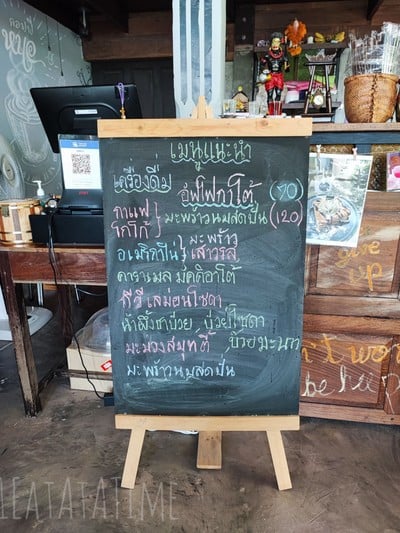 เมนูแนะนำ
เครื่องดื่ม
อัฟโฟกาโต้ (90)
กาแฟ
โกโก้ } มะพร้าวนมสดปั่น (120)
อเมริกาโน่ } มะพร้าว
เสาวรส
คาราเมล มัคคิอาโต้
กีวี่ เลมอนโซดา
น้ำผึ้ง บ๊วย บ๊วยโซดา
มะม่วงสมูทตี้ บ๊วยมะนาว
มะพร้าวนมสดปั่น
give
up
n't wor
be hap
1EATATATIME